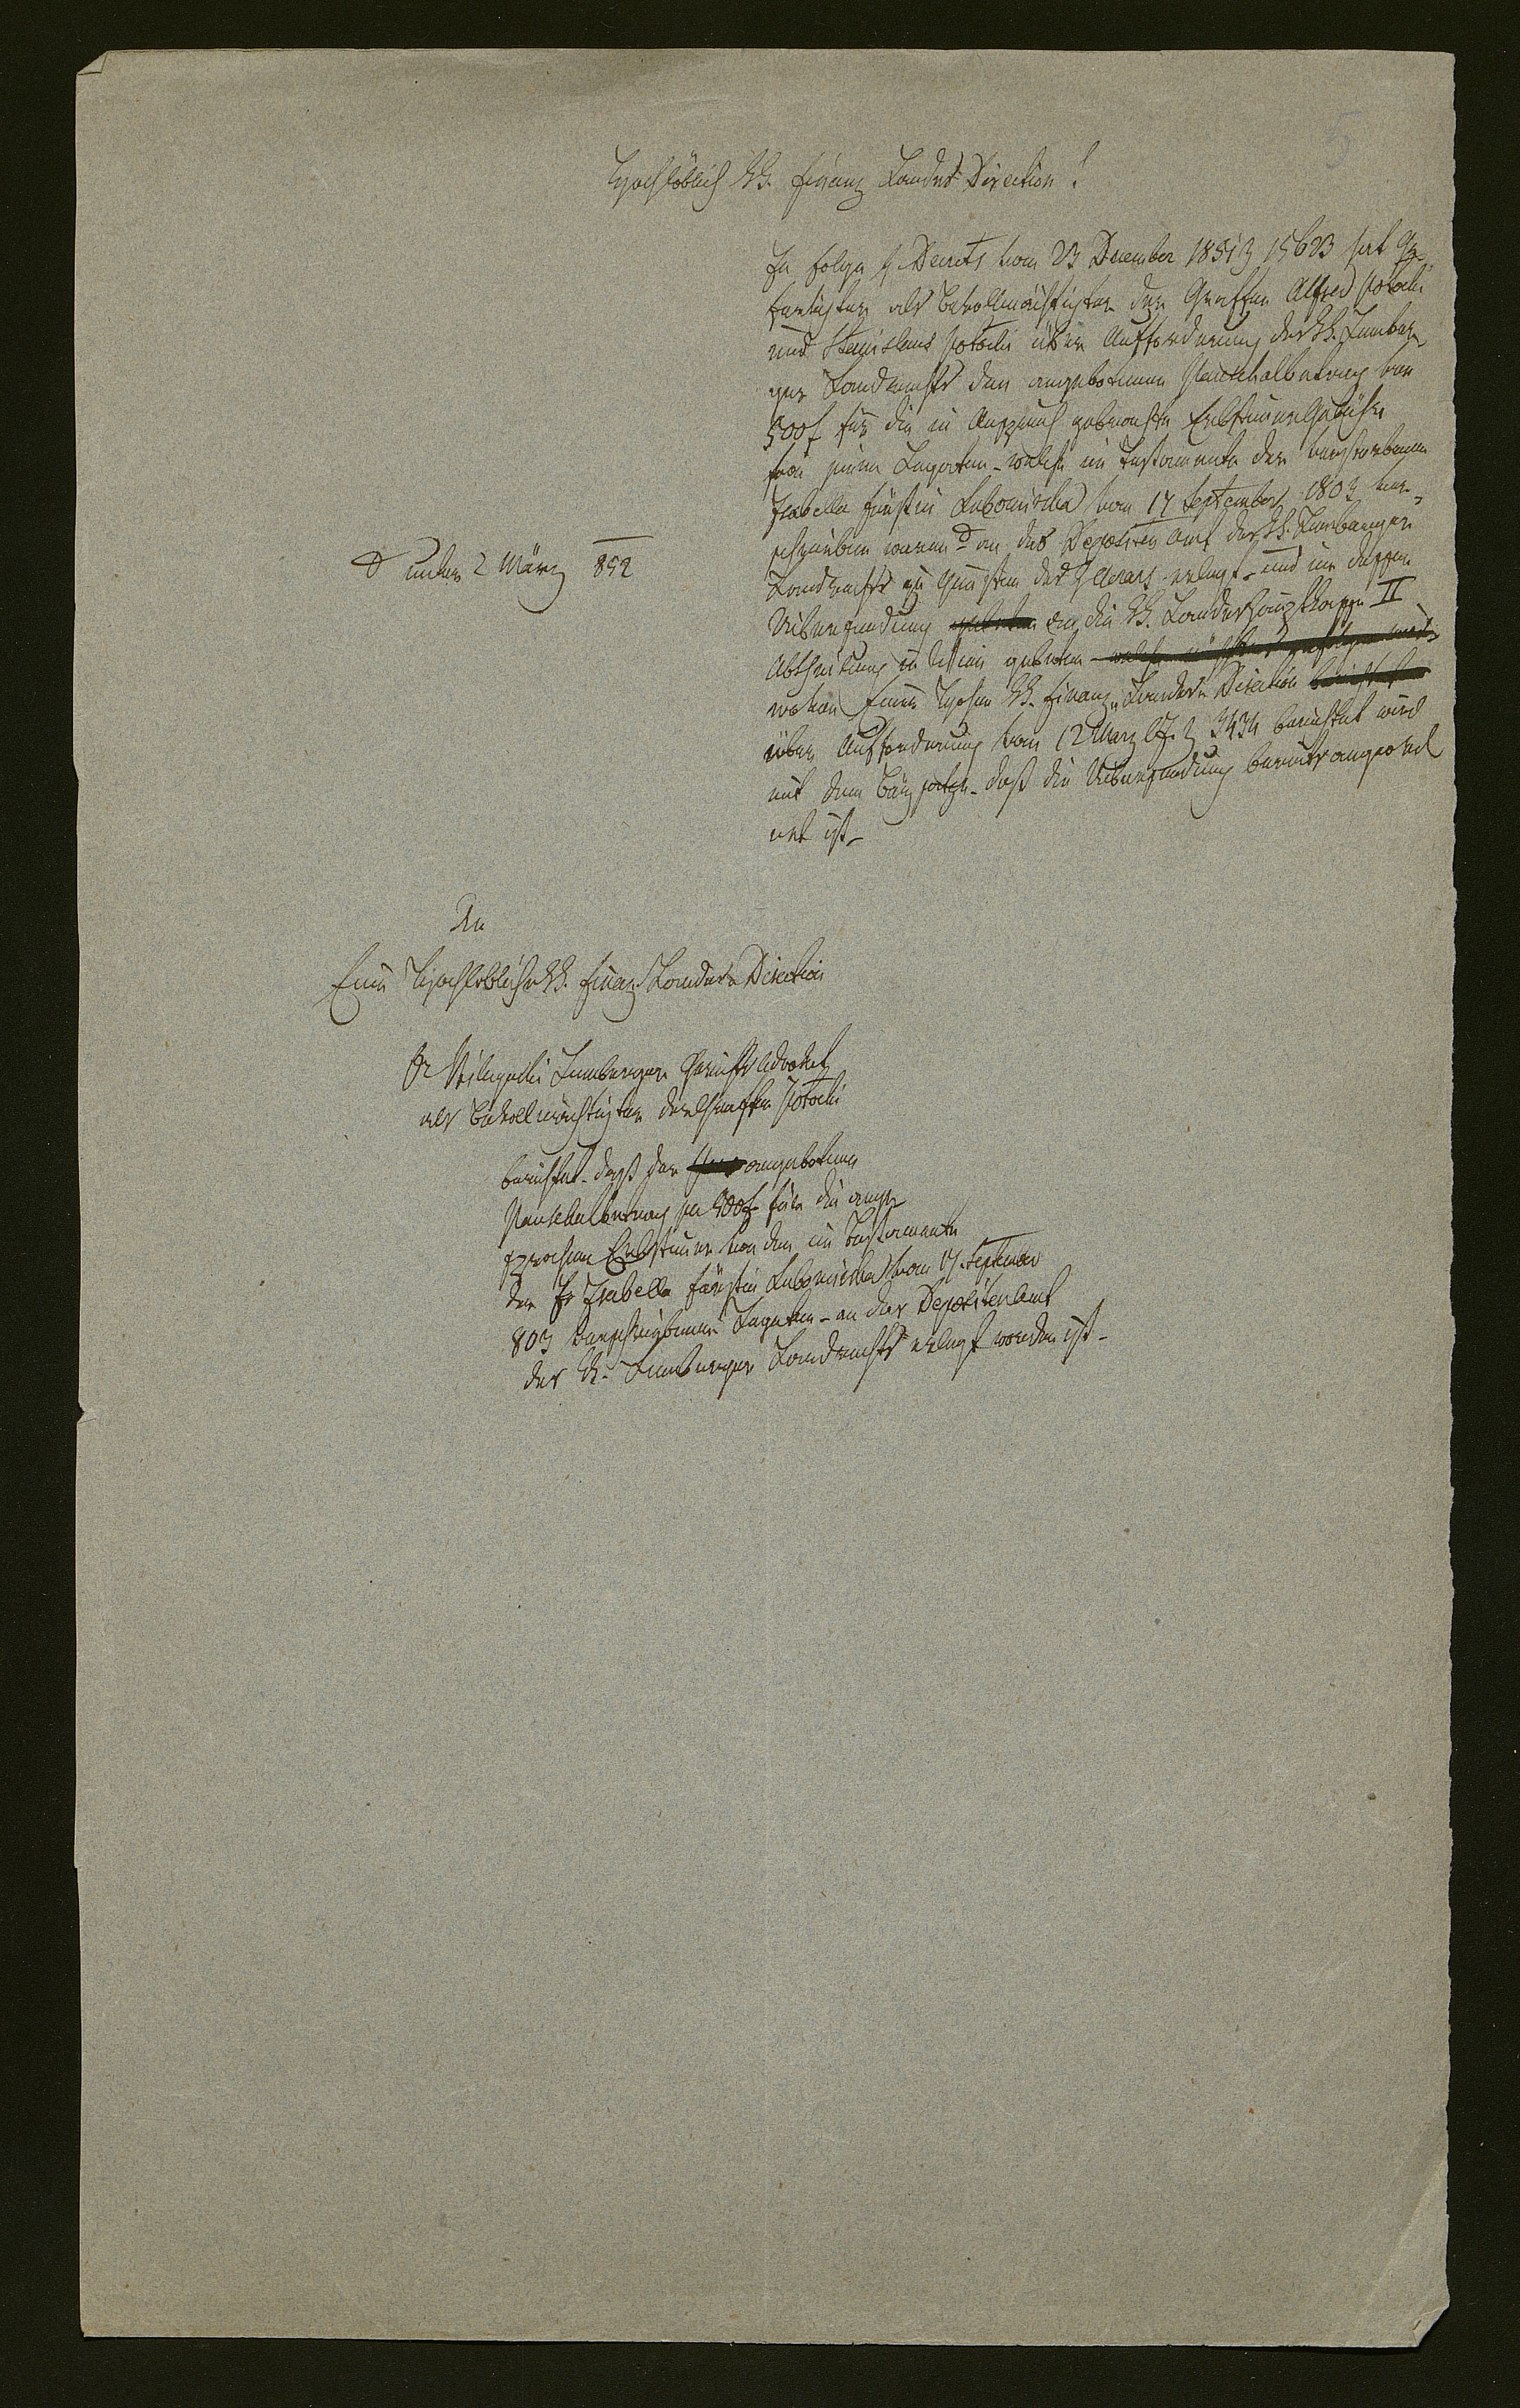 5
Hochlöblich kk. Finanz Landes Direction!
In folge h Decrets vom 23 December 1851 Z 15623 hat Ge-
fertigter als Bevollmächtigter der Graffen Alfred Potocki
und Stanislaus Potocki über Aufforderung des kk. Lember-
ger Landrechts den angebotenen Pauschalbetrag von
500 f für die in Anspruch gebrachte Erbsteuer Gebühr
von jenen Legaten - welche im Testamente der verstorbenen
Isabella Fürstin Lubomirska vom 17 September 1803 ver-
schrieben waren an das Depositen Amt des kk. Lemberger
unter 2 März 852
Landrechts zu Gunsten des h Aerars erlegt - und um dessen
Uibersendung an die kk. Landeshauptkasse II
Abtheilung in gebeten - welche
wovon Einer Hohen kk. Finanz Landes Direction
über Aufforderung vom 12 März l. J. Z 3434 berichtet wird
mit dem Beisatze - daß die Uibersendung bereits angeord
net ist -
An
Eine Hochlöbliche kk. Finanz Landes Direction
Lemberger Gerichts Advokat
als Bevollmächtigter der Graffen Potocki
berichtet - daß der angebotene
Pauschalbetrag pr 500 f für die ange-
sprochene Erbsteuer von den im Testamente
der Fr Isabella Fürstin Lubomirska vom 17 September
803 verschriebenen Legaten - an das Depositen Amt
des kk. Lemberger Landrechts erlegt worden ist -